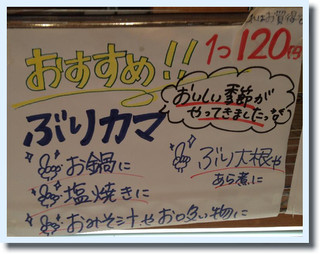 おすすめ!!
1つ120円
おいしい季節が
やってきました
ぶりカマ
お鍋に
塩焼きに
おみそ汁やお吸い物に
ぶり大根や
あら煮に